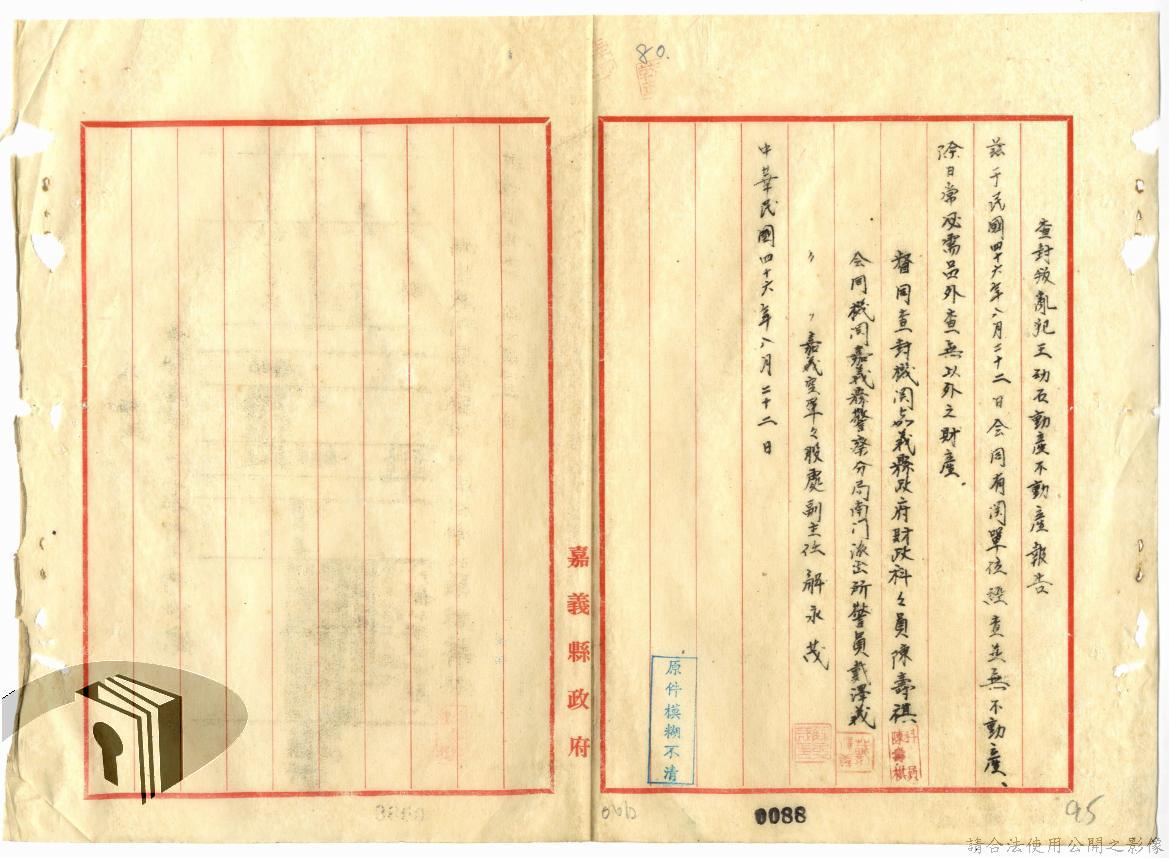 80.
查封叛亂犯王功石動產不動產報告
茲于民國四十六年八月二十二日会同有関單位經查並無不動產、
除日常必需品外查無以外之財產.
督同查封機関嘉義縣政府財政科々員陳壽祺
会同機関嘉義縣警察分局南门派出所警員戴澤義
〃 〃 嘉義空軍々眷處副主任解永茂
中華民國四十六年八月二十二日
科員
陳壽祺
原件模糊不清
嘉義縣政府
0088
95
請合法使用公開之影像